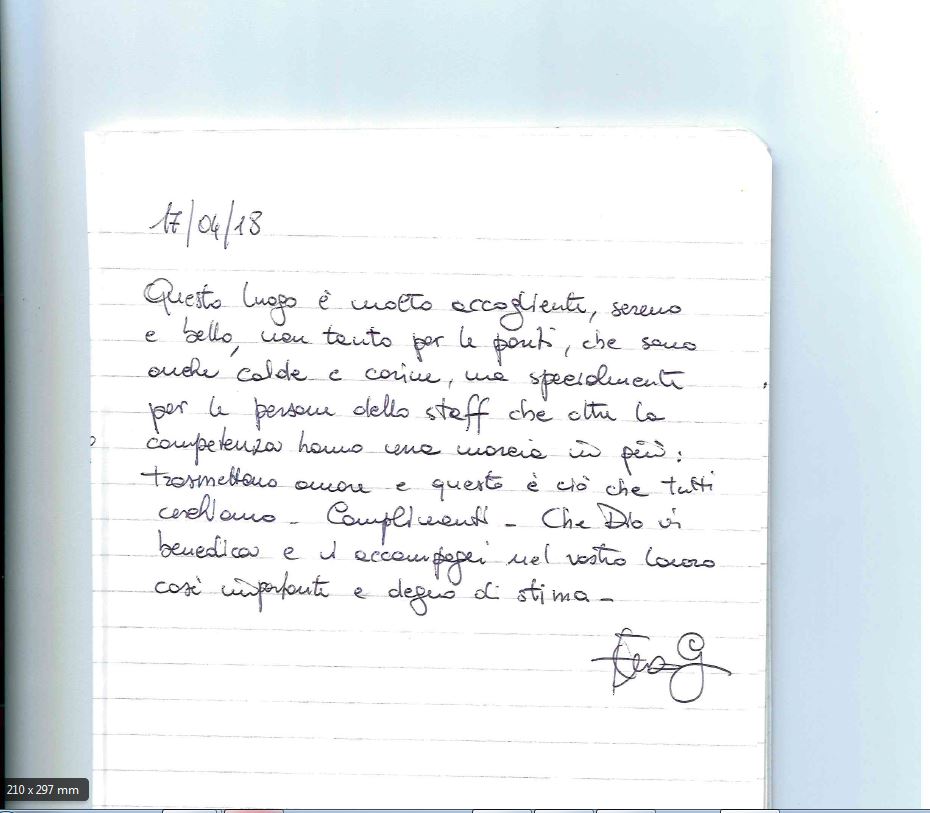 17/04/18
Questo luogo è molto accogliente, sereno
e bello, non tanto per le pareti, che sono
anche calde e carine, ma specialmente
per le persone dello staff che oltre la
competenza hanno una marcia in più:
trasmettono amore e questo è ciò che tutti
cerchiamo - Complimenti - Che Dio vi
benedica e vi accompagni nel vostro lavoro
così importante e degno di stima -
210 x 297 mm